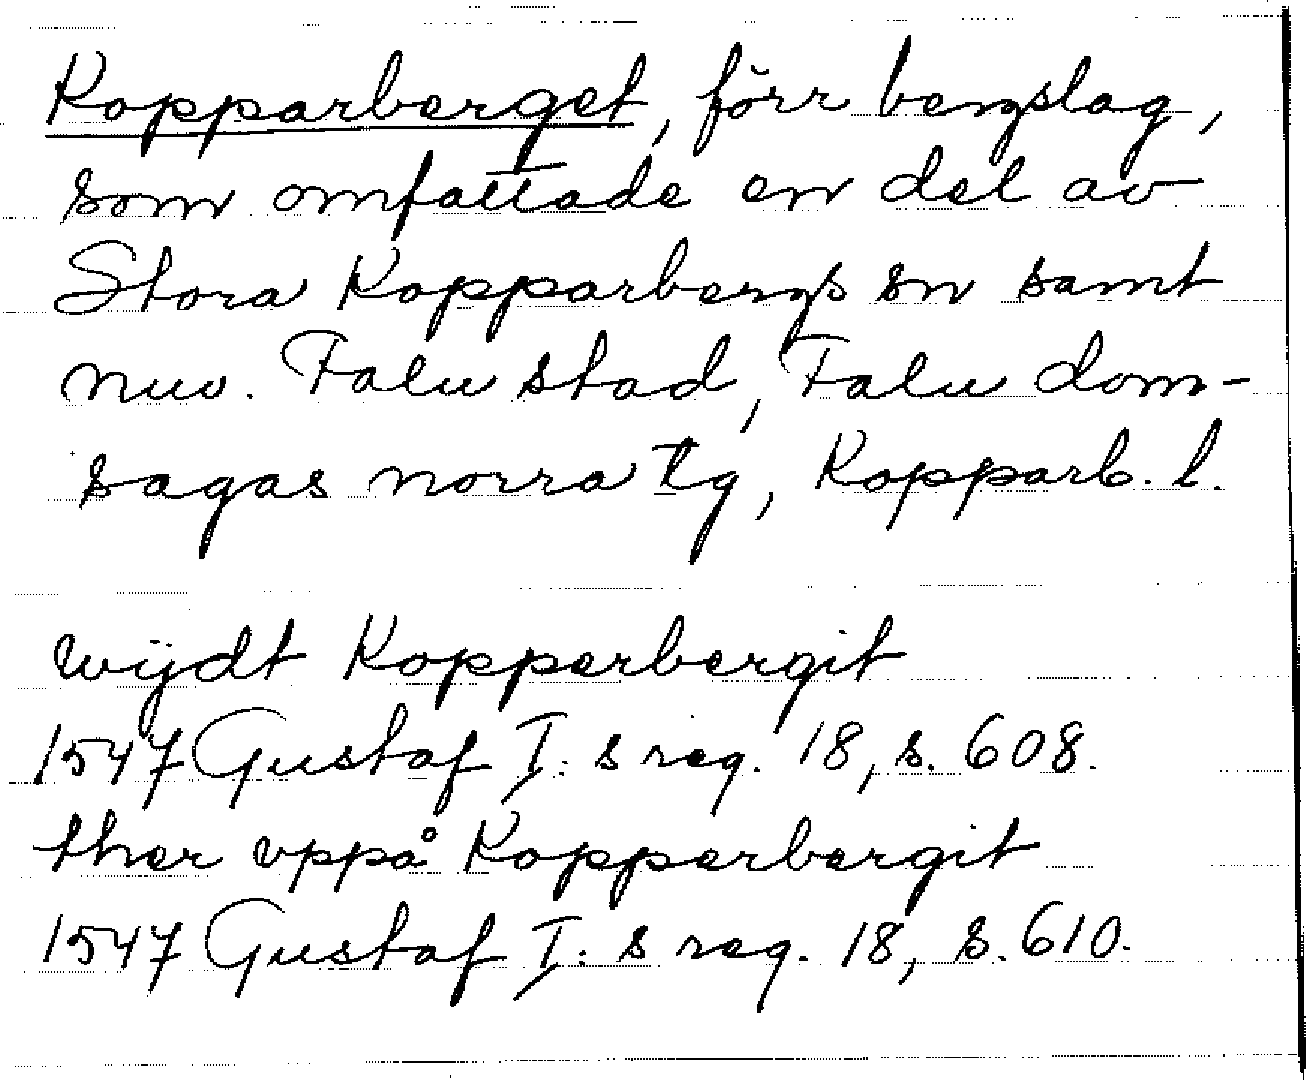 Kopparberget, förr bergslag,
som omfattade en del av
Stora Kopparbergs sn samt
nuv. Falu stad, Falu dom-
sagas norra tg, Kopparb. l.
wijdt Kopperbergit
1547 Gustaf I:s reg. 18, s. 608.
ther vppå Kopperbergit
1547 Gustaf I:s reg. 18, s. 610.